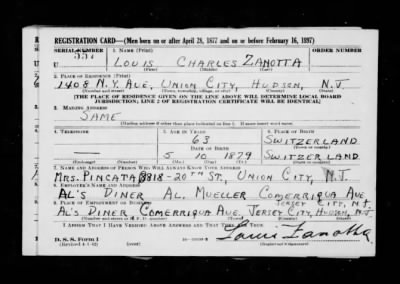 REGISTRATION CARD—(Men born on or after April 28, 1877 and on or before February 16, 1897)
SERIAL NUMBER 1. NAME (Print) ORDER NUMBER
U 557 LOUIS CHARLES ZANOTTA
(First) (Middle) (Last)
2. PLACE OF RESIDENCE (Print)
1408 N.Y. AVE, UNION CITY, HUDSON, N.J.
(Number and street) (Town, township, village, or city) (County) (State)
[THE PLACE OF RESIDENCE GIVEN ON THE LINE ABOVE WILL DETERMINE LOCAL BOARD
JURISDICTION; LINE 2 OF REGISTRATION CERTIFICATE WILL BE IDENTICAL]
3. MAILING ADDRESS
SAME
[Mailing address if other than place indicated on line 2. If same insert word same]
4. TELEPHONE 5. AGE IN YEARS 6. PLACE OF BIRTH
63 SWITZERLAND
DATE OF BIRTH
5 10 1879 SWITZERLAND
(Exchange) (Number) (Mo.) (Day) (Yr.) (State or country)
7. NAME AND ADDRESS OF PERSON WHO WILL ALWAYS KNOW YOUR ADDRESS
MRS. PINCATA 818-20TH ST., UNION CITY, N.J.
8. EMPLOYER'S NAME AND ADDRESS
AL'S DINER AL. MUELLER COMERRIQUA AVE
JERSEY CITY, N.J.
9. PLACE OF EMPLOYMENT OR BUSINESS
AL'S DINER COMERRIQUA AVE. JERSEY CITY, HUDSON, N.J.
(Number and street or R. F. D. number) (Town) (County) (State)
I AFFIRM THAT I HAVE VERIFIED ABOVE ANSWERS AND THAT THEY ARE TRUE.
D. S. S. Form 1
(Revised 4-1-42) (over) Louis Zanotta
(Registrant's signature)